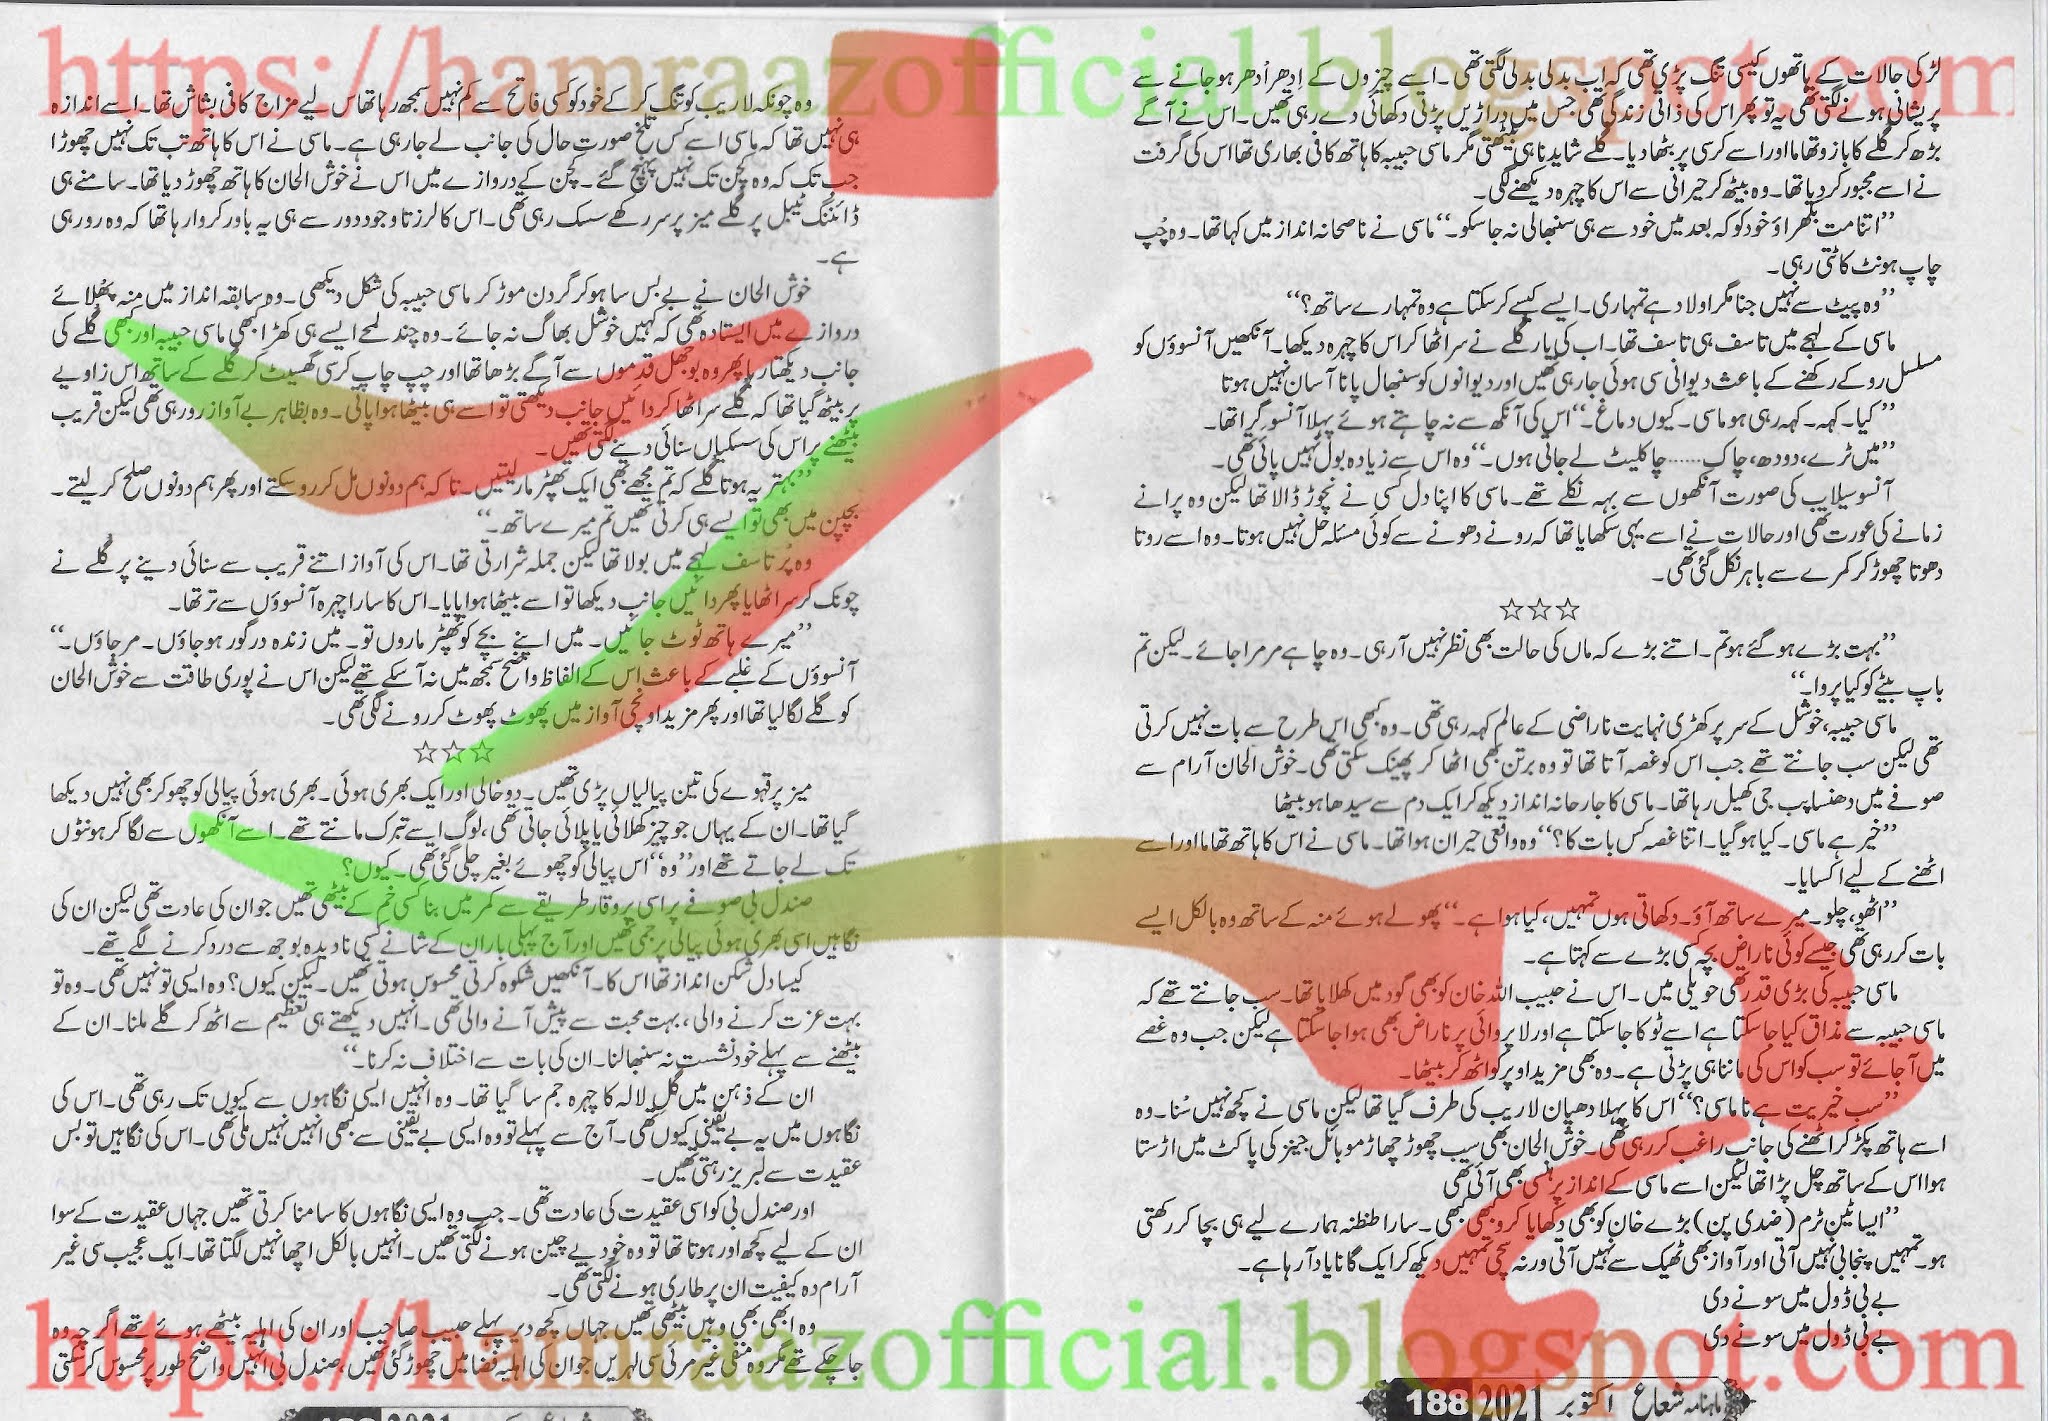 https://hamraazofficial.blogspot.com
لڑکی حالات کے ہاتھوں کیسی تنگ پڑی تھی کہ اب بدلی بدلی لگتی تھی۔ اسے چیزوں کے اِدھر اُدھر ہو جانے سے
پریشانی ہونے لگتی تھی یہ تو پھر اس کی ذاتی زندگی تھی جس میں دراڑیں پڑتی دکھائی دے رہی تھیں۔ اس نے آگے
بڑھ کر گلے کا بازو تھاما اور اسے کرسی پر بٹھا دیا۔ گلے شاید نا ہی بیٹھتی مگر ماسی حبیبہ کا ہاتھ کافی بھاری تھا اس کی گرفت
نے اسے مجبور کر دیا تھا۔ وہ بیٹھ کر حیرانی سے اس کا چہرہ دیکھنے لگی۔
’’اتنا مت بکھراؤ خود کو کہ بعد میں خود سے ہی سنبھالی نہ جاسکو۔‘‘ ماسی نے ناصحانہ انداز میں کہا تھا۔ وہ چُپ
چاپ ہونٹ کاٹتی رہی۔
’’وہ پیٹ سے نہیں جنا مگر اولاد ہے تمہاری۔ ایسے کیسے کرسکتا ہے وہ تمہارے ساتھ؟‘‘
ماسی کے لہجے میں تاسف ہی تاسف تھا۔ اب کی بار گلے نے سر اٹھا کر اس کا چہرہ دیکھا۔ آنکھیں آنسوؤں کو
مسلسل روکے رکھنے کے باعث دیوانی سی ہوئی جارہی تھیں اور دیوانوں کو سنبھال پانا آسان نہیں ہوتا
’’کیا۔ کہہ۔ کہہ رہی ہو ماسی۔ کیوں دماغ۔‘‘ اس کی آنکھ سے نہ چاہتے ہوئے پہلا آنسو گرا تھا۔
’’میں ٹرے، دودھ، چاک ...... چاکلیٹ لے جاتی ہوں۔‘‘ وہ اس سے زیادہ بول نہیں پائی تھی۔
آنسو سیلاب کی صورت آنکھوں سے بہہ نکلے تھے۔ ماسی کا اپنا دل کسی نے نچوڑ ڈالا تھا لیکن وہ پرانے
زمانے کی عورت تھی اور حالات نے اسے یہی سکھایا تھا کہ رونے دھونے سے کوئی مسئلہ حل نہیں ہوتا۔ وہ اسے روتا
دھوتا چھوڑ کر کمرے سے باہر نکل گئی تھی۔
☆☆☆
’’بہت بڑے ہو گئے ہو تم۔ اتنے بڑے کہ ماں کی حالت بھی نظر نہیں آرہی۔ وہ چاہے مر مرا جائے۔ لیکن تم
باپ بیٹے کو کیا پروا۔‘‘
ماسی حبیبہ، خوشل کے سر پر کھڑی نہایت ناراضی کے عالم کہہ رہی تھی۔ وہ کبھی اس طرح سے بات نہیں کرتی
تھی لیکن سب جانتے تھے جب اس کو غصہ آتا تھا تو وہ برتن بھی اٹھا کر پھینک سکتی تھی۔ خوش الحان آرام سے
صوفے میں دھنسا پب جی کھیل رہا تھا۔ ماسی کا جارحانہ انداز دیکھ کر ایک دم سے سیدھا ہو بیٹھا
’’خیر ہے ماسی۔ کیا ہو گیا۔ اتنا غصہ کس بات کا؟‘‘ وہ واقعی حیران ہوا تھا۔ ماسی نے اس کا ہاتھ تھاما اور اسے
اٹھنے کے لیے اکسایا۔
’’اٹھو، چلو۔ میرے ساتھ آؤ۔ دکھاتی ہوں تمہیں، کیا ہوا ہے۔‘‘ پھولے ہوئے منہ کے ساتھ وہ بالکل ایسے
بات کر رہی تھی جیسے کوئی ناراض بچہ کسی بڑے سے کہتا ہے۔
ماسی حبیبہ کی بڑی قدر تھی حویلی میں۔ اس نے حبیب اللہ خان کو بھی گود میں کھلایا تھا۔ سب جانتے تھے کہ
ماسی حبیبہ سے مذاق کیا جاسکتا ہے اسے ٹوکا جاسکتا ہے اور لاپروائی پر ناراض بھی ہوا جاسکتا ہے لیکن جب وہ غصے
میں آجائے تو سب کو اس کی ماننا ہی پڑتی ہے۔ وہ بھی مزید اوپر کو اٹھ کر بیٹھا۔
’’سب خیریت ہے نا ماسی؟‘‘ اس کا پہلا دھیان لاریب کی طرف گیا تھا لیکن ماسی نے کچھ نہیں سُنا۔ وہ
اسے ہاتھ پکڑ کر اٹھنے کی جانب راغب کر رہی تھی۔ خوش الحان بھی سب چھوڑ چھاڑ موبائل جینز کی پاکٹ میں اڑستا
ہوا اس کے ساتھ چل پڑا تھا لیکن اسے ماسی کے انداز پر ہنسی بھی آئی تھی
’’ایسا ٹین ٹرم (ضدی پن) بڑے خان کو بھی دکھایا کرو کبھی کبھی۔ سارا طنطنہ ہمارے لیے ہی بچا کر رکھتی
ہو۔ تمہیں پنجابی نہیں آتی اور آواز بھی ٹھیک سے نہیں آتی ورنہ سچی تمہیں دیکھ کر ایک گانا یاد آرہا ہے۔
بے بی ڈول میں سونے دی
بے بی ڈول میں سونے دی
ماہنامہ شعاع اکتوبر 2021 188
وہ چونکہ لاریب کو تنگ کر کے خود کو کسی فاتح سے کم نہیں سمجھ رہا تھا اس لیے مزاج کافی بشاش تھا۔ اسے اندازہ
ہی نہیں تھا کہ ماسی اسے کس تلخ صورت حال کی جانب لے جارہی ہے۔ ماسی نے اس کا ہاتھ تب تک نہیں چھوڑا
جب تک کہ وہ کچن تک نہیں پہنچ گئے۔ کچن کے دروازے میں اس نے خوش الحان کا ہاتھ چھوڑ دیا تھا۔ سامنے ہی
ڈائننگ ٹیبل پر گلے میز پر سر رکھے سسک رہی تھی۔ اس کا لرزتا وجود دور سے ہی یہ باور کروا رہا تھا کہ وہ رو رہی
ہے۔
خوش الحان نے بے بس سا ہو کر گردن موڑ کر ماسی حبیبہ کی شکل دیکھی۔ وہ سابقہ انداز میں منہ پُھلائے
دروازے میں ایستادہ تھی کہ کہیں خوشل بھاگ نہ جائے۔ وہ چند لمحے ایسے ہی کھڑا کبھی ماسی حبیبہ اور کبھی گلے کی
جانب دیکھتا رہا پھر وہ بوجھل قدموں سے آگے بڑھا تھا اور چپ چاپ کرسی گھسیٹ کر گلے کے ساتھ اس زاویے
پر بیٹھ گیا تھا کہ گلے سر اٹھا کر دائیں جانب دیکھتی تو اسے ہی بیٹھا ہوا پاتی۔ وہ بظاہر بے آواز رو رہی تھی لیکن قریب
بیٹھنے پر اس کی سسکیاں سنائی دینے لگتی تھیں۔
’’بہتر یہ ہوتا گلے کہ تم مجھے بھی ایک تھپڑ مار لیتیں۔ تا کہ ہم دونوں مل کر رو سکتے اور پھر ہم دونوں صلح کر لیتے۔
بچپن میں بھی تو ایسے ہی کرتی تھیں تم میرے ساتھ۔‘‘
وہ پُرتاسف لہجے میں بولا تھا لیکن جملہ شرارتی تھا۔ اس کی آواز اتنے قریب سے سنائی دینے پر گلے نے
چونک کر سر اٹھایا پھر دائیں جانب دیکھا تو اسے بیٹھا ہوا پایا۔ اس کا سارا چہرہ آنسوؤں سے تر تھا۔
’’میرے ہاتھ ٹوٹ جائیں۔ میں اپنے بچے کو تھپڑ ماروں تو۔ میں زندہ درگور ہو جاؤں۔ مر جاؤں۔‘‘
آنسوؤں کے غلبے کے باعث اس کے الفاظ واضح سمجھ میں نہ آسکے تھے لیکن اس نے پوری طاقت سے خوش الحان
کو گلے لگا لیا تھا اور پھر مزید اونچی آواز میں پھوٹ پھوٹ کر رونے لگی تھی۔
☆☆☆
میز پر قہوے کی تین پیالیاں پڑی تھیں۔ دو خالی اور ایک بھری ہوئی۔ بھری ہوئی پیالی کو چھو کر بھی نہیں دیکھا
گیا تھا۔ ان کے یہاں جو چیز کھلائی یا پلائی جاتی تھی، لوگ اسے تبرک مانتے تھے۔ اسے آنکھوں سے لگا کر ہونٹوں
تک لے جاتے تھے اور ’’وہ‘‘ اس پیالی کو چھوئے بغیر چلی گئی تھی۔ کیوں؟
صندل بی صوفے پر اسی پروقار طریقے سے کمر میں بنا کسی خم کے بیٹھی تھیں جو ان کی عادت تھی لیکن ان کی
نگاہیں اسی بھری ہوئی پیالی پر جمی تھیں اور آج پہلی بار ان کے شانے کسی نادیدہ بوجھ سے درد کرنے لگے تھے۔
کیسا دل شکن انداز تھا اس کا۔ آنکھیں شکوہ کرتی محسوس ہوتی تھیں۔ لیکن کیوں؟ وہ ایسی تو نہیں تھی۔ وہ تو
بہت عزت کرنے والی، بہت محبت سے پیش آنے والی تھی۔ انہیں دیکھتے ہی تعظیم سے اٹھ کر گلے ملنا۔ ان کے
بیٹھنے سے پہلے خود نشست نہ سنبھالنا۔ ان کی بات سے اختلاف نہ کرنا۔‘‘
ان کے ذہن میں گل لالہ کا چہرہ جم سا گیا تھا۔ وہ انہیں ایسی نگاہوں سے کیوں تک رہی تھی۔ اس کی
نگاہوں میں یہ بے یقینی کیوں تھی۔ آج سے پہلے تو وہ ایسی بے یقینی سے کبھی انہیں نہیں ملی تھی۔ اس کی نگاہیں تو بس
عقیدت سے لبریز رہتی تھیں۔
اور صندل بی کو اسی عقیدت کی عادت تھی۔ جب وہ ایسی نگاہوں کا سامنا کرتی تھیں جہاں عقیدت کے سوا
ان کے لیے کچھ اور ہوتا تھا تو وہ خود بے چین ہونے لگتی تھیں۔ انہیں بالکل اچھا نہیں لگتا تھا۔ ایک عجیب سی غیر
آرام دہ کیفیت ان پر طاری ہونے لگتی تھی۔
وہ ابھی بھی وہیں بیٹھی تھیں جہاں کچھ دیر پہلے حبیب صاحب اور ان کی اہلیہ بیٹھے ہوئے تھے اگرچہ وہ
جاچکے تھے مگر وہ منفی غیر مرئی سی لہریں جو ان کی اہلیہ فضا میں چھوڑ گئی تھیں، صندل بی انہیں واضح طور پر محسوس کرسکتی
https://hamraazofficial.blogspot.com